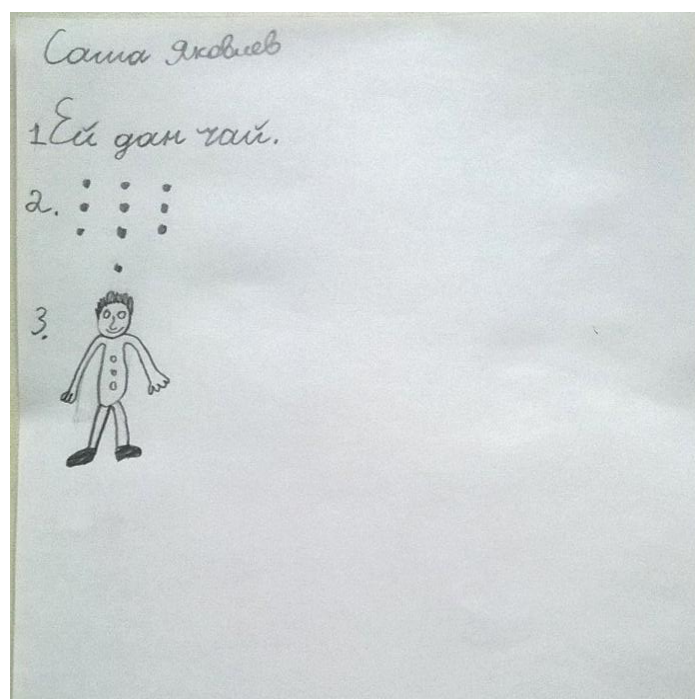 Саша Яковлев
1 Ей дан чай.
2.
3.